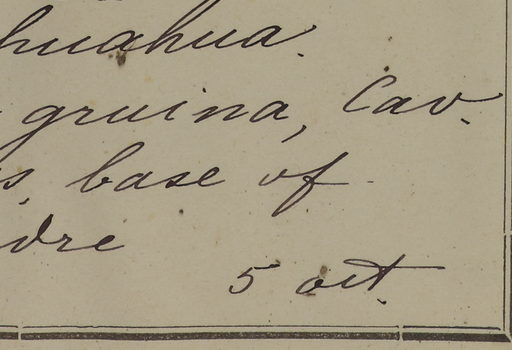 huahua.
gruina, Cav.
s, base of
dre
5 oct.